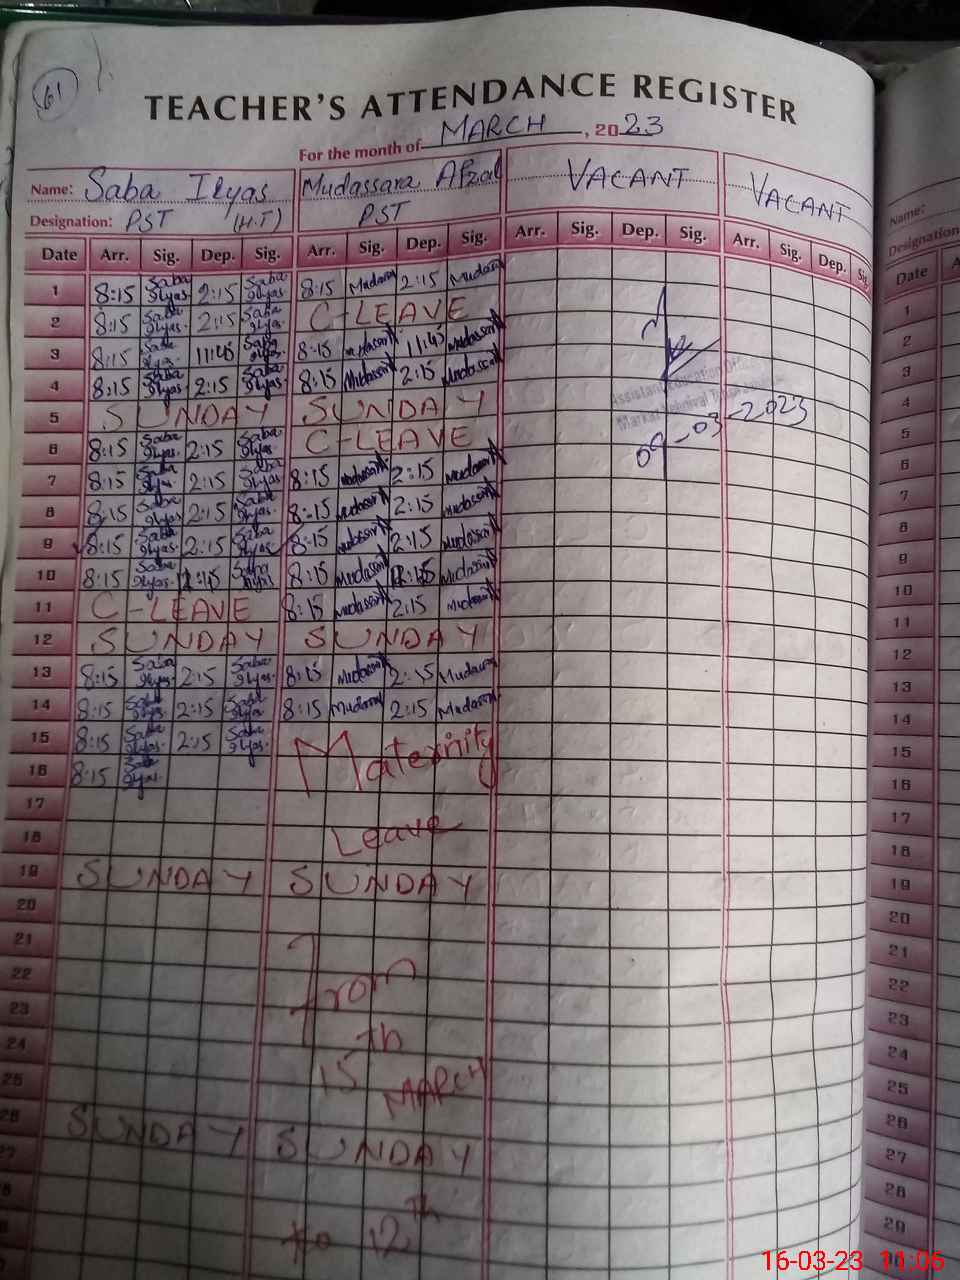 61
TEACHER'S ATTENDANCE REGISTER
For the month of MARCH, 2023
Name: Saba Ilyas Mudassara Afzal VACANT VACANT
Designation: PST (H.T) PST
Date Arr. Sig. Dep. Sig. Arr. Sig. Dep. Sig. Arr. Sig. Dep. Sig. Arr. Sig. Dep. Sig.
1 8:15 Saba Ilyas 2:15 Saba Ilyas 8:15 Mudassra 2:15 Mudassra
2 8:15 Saba Ilyas 2:15 Saba Ilyas C-LEAVE
3 8:15 Saba Ilyas 11:45 Saba Ilyas 8:15 Mudassira 11:45 Mudassira
4 8:15 Saba Ilyas 2:15 Saba Ilyas 8:15 Mudassira 2:15 Mudassira
5 SUNDAY SUNDAY
6 8:15 Saba Ilyas 2:15 Saba Ilyas C-LEAVE
09-03-2023
7 8:15 Saba Ilyas 2:15 Saba Ilyas 8:15 Mudassira 2:15 Mudassira
8 8:15 Saba Ilyas 2:15 Saba Ilyas 8:15 Mudassira 2:15 Mudassira
9 8:15 Saba Ilyas 2:15 Saba Ilyas 8:15 Mudassira 2:15 Mudassira
10 8:15 Saba Ilyas Saba Ilyas 8:15 Mudassira Mudassira
11 C-LEAVE 8:15 Mudassira 2:15 Mudassira
12 SUNDAY SUNDAY
13 8:15 Saba Ilyas 2:15 Saba Ilyas 8:15 Mudassira 2:15 Mudassra
14 8:15 Saba Ilyas 2:15 Saba Ilyas 8:15 Mudassra 2:15 Mudassra
15 8:15 Saba Ilyas 2:15 Saba Ilyas Maternity
16 8:15 Saba Ilyas
17
18 Leave
19 SUNDAY SUNDAY
20
21
22 From
23
24 th
25 15 MARCH
26 SUNDAY SUNDAY
27
28
to 12th
Name:
Designation
Date A
1
2
3
4
5
6
7
8
9
10
11
12
13
14
15
16
17
18
19
20
21
22
23
24
25
26
27
28
29
16-03-23 11:06